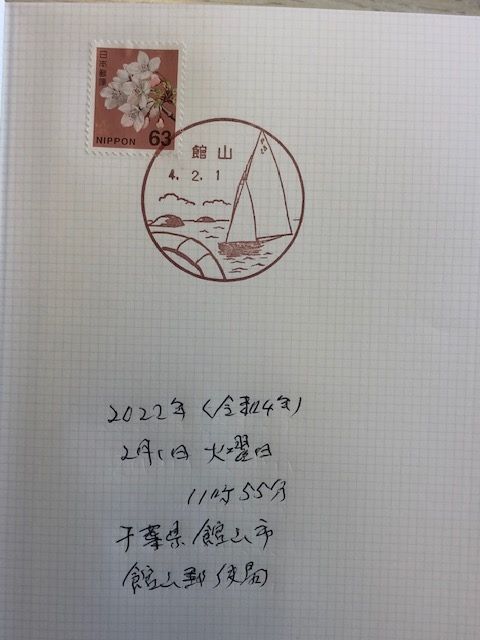 日本郵便
NIPPON 63
館山
4.2.1
2022年(令和4年)
2月1日 火曜日
11時55分
千葉県館山市
館山郵便局